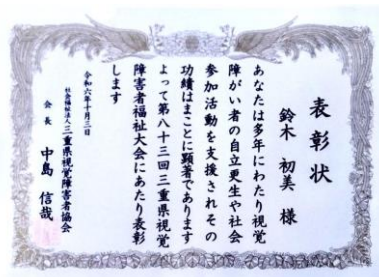 表彰状
鈴木 初美 様
あなたは多年にわたり視覚
障がい者の自立更生や社会
参加活動を支援されその
功績はまことに顕著であります
よって第八十三回三重県視覚
障害者福祉大会にあたり表彰
します
令和六年十月三日
社会福祉法人 三重県視覚障害者協会
会長 中島 信哉